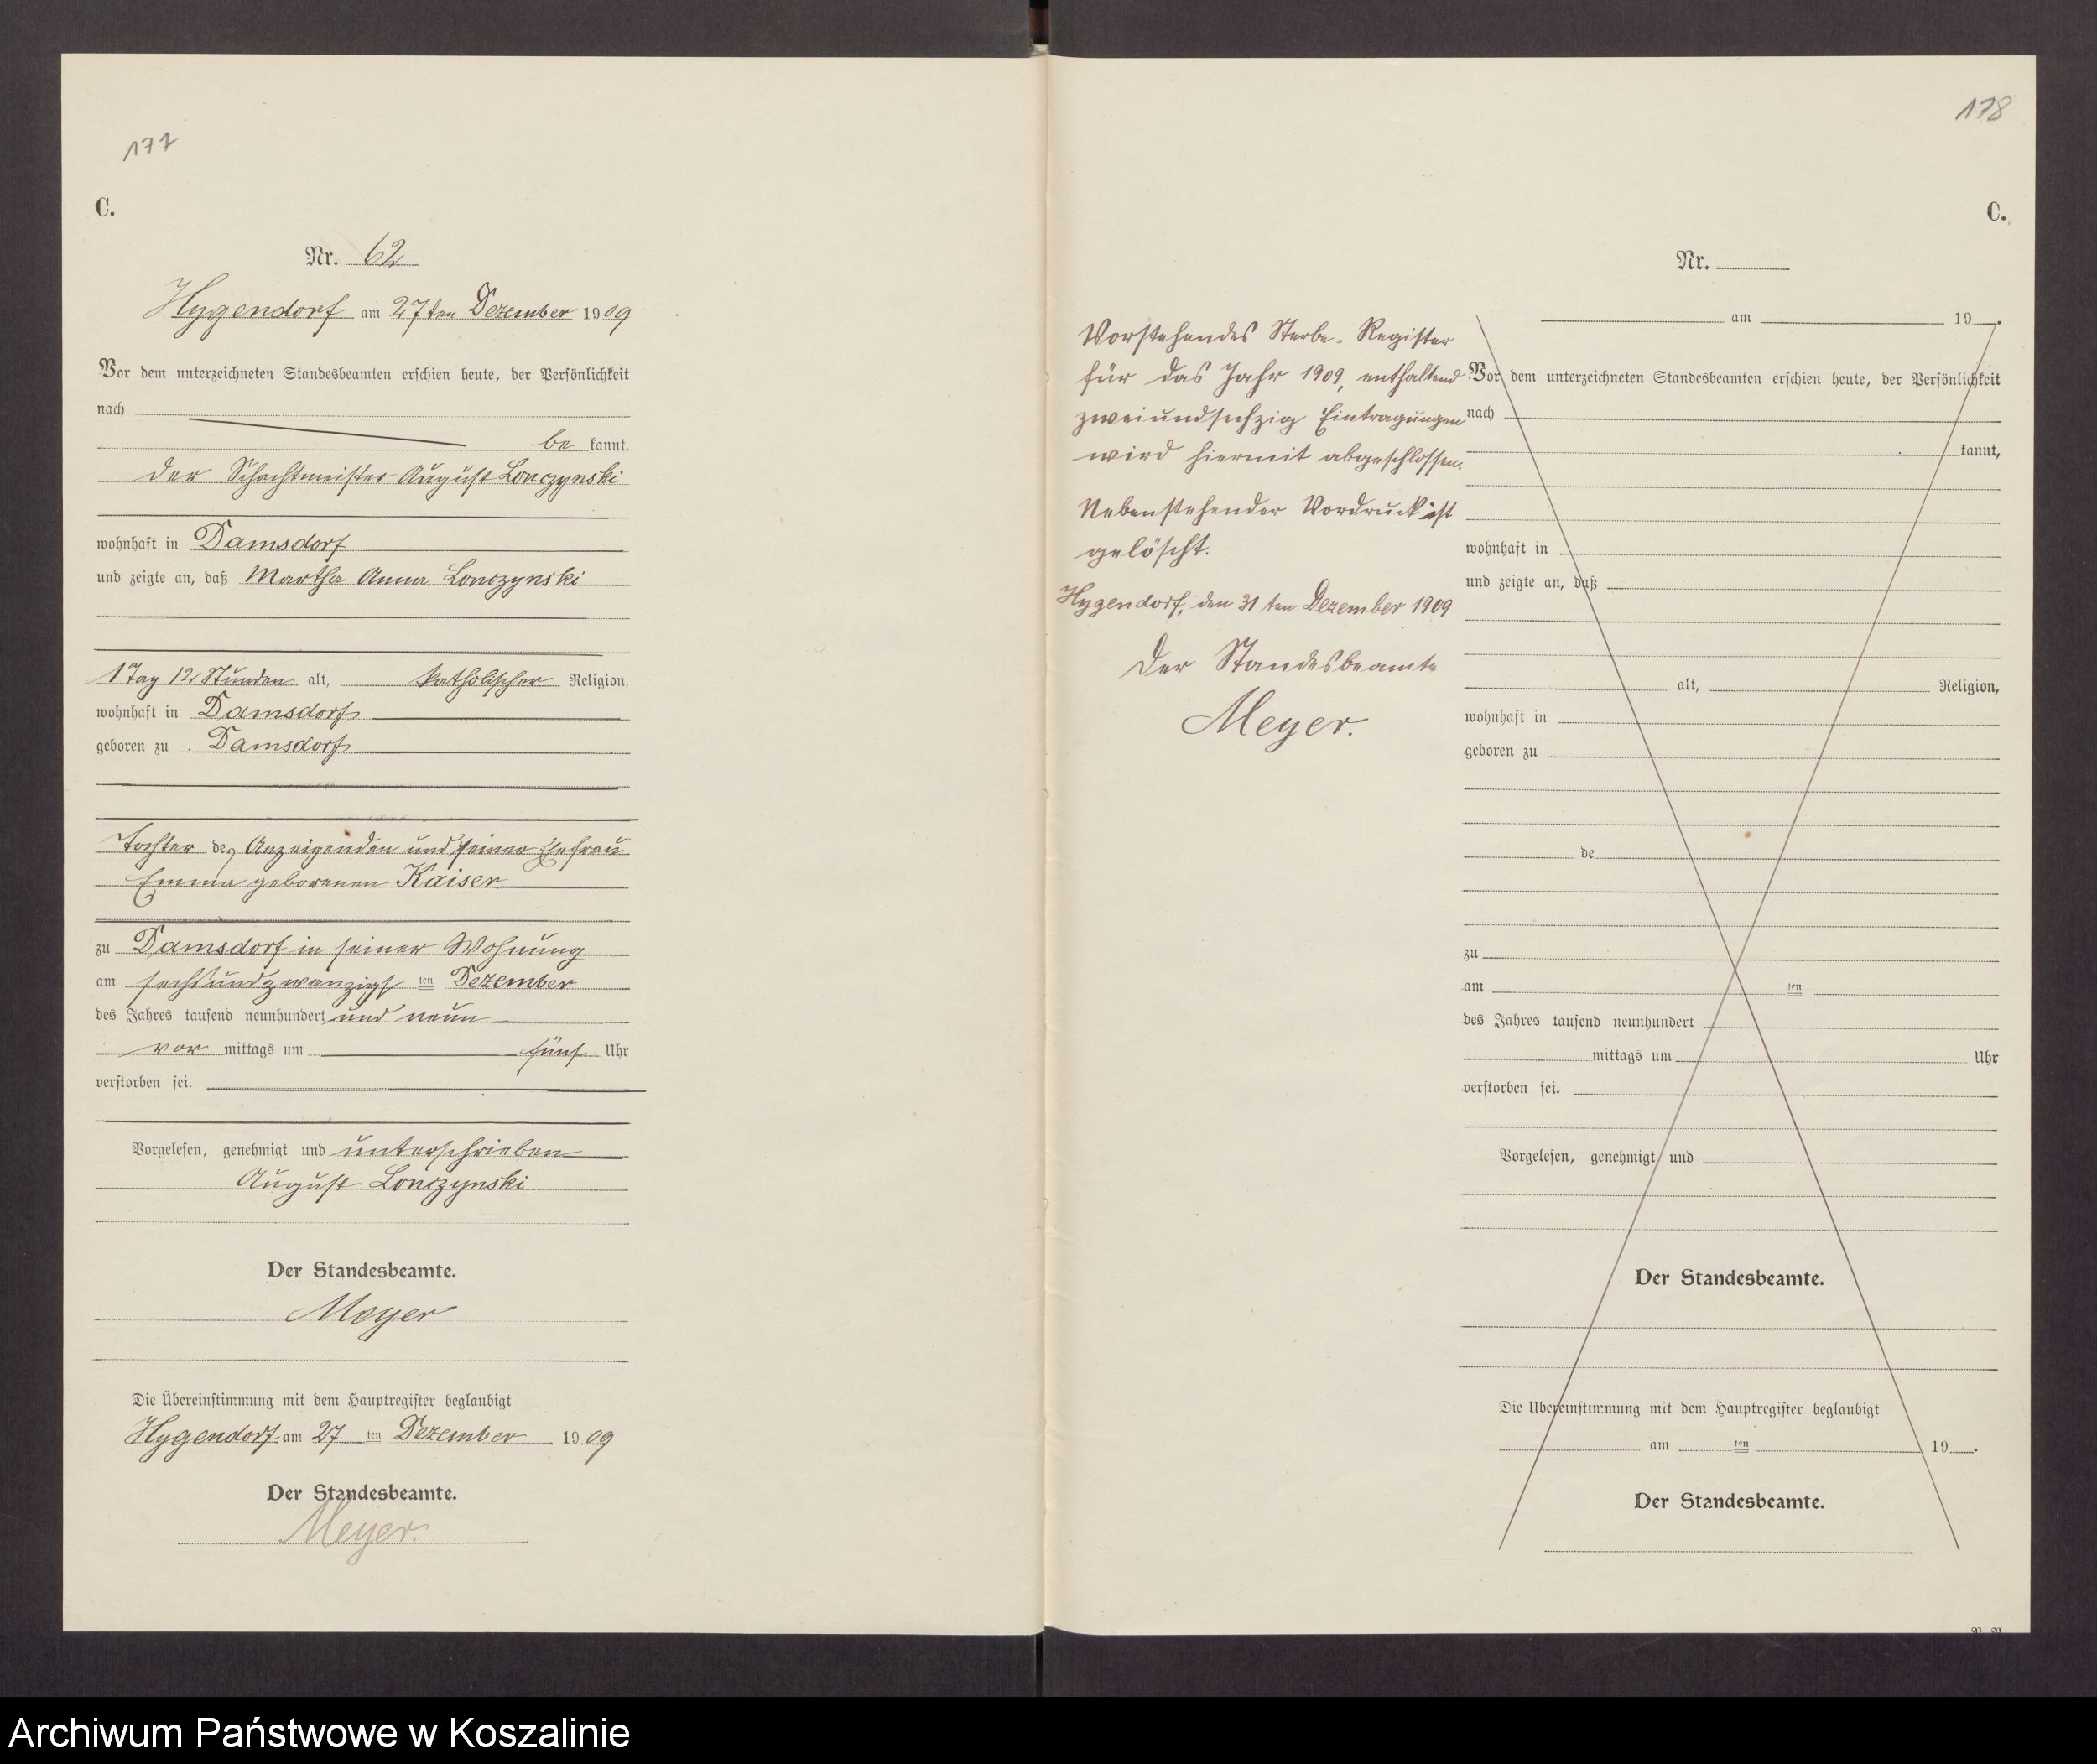 177
C.
Nr. 62
Hygendorf am 27ten Dezember 1909
Vor dem unterzeichneten Standesbeamten erschien heute, der Persönlichkeit
nach
be kannt,
der Schachtmeister August Lonczynski
wohnhaft in Damsdorf
und zeigte an, daß Martha Anna Lonczynski
1 Tag 12 Stunden alt, katholischer Religion,
wohnhaft in Damsdorf
geboren zu Damsdorf
Tochter des Anzeigenden und seiner Ehefrau
Emma geborenen Kaiser
zu Damsdorf in seiner Wohnung
am sechsundzwanzigsten Dezember
des Jahres tausend neunhundert und neun
vor mittags um fünf Uhr
verstorben sei.
Vorgelesen, genehmigt und unterschrieben
August Lonczynski
Der Standesbeamte.
Meyer
Die Übereinstimmung mit dem Hauptregister beglaubigt
Hygendorf am 27 ten Dezember 1909
Der Standesbeamte.
Meyer.
178
C.
Vorstehendes Sterbe-Register
für das Jahr 1909, enthaltend
zweiundsechzig Eintragungen
wird hiermit abgeschlossen.
Nebenstehender Vordruck ist
gelöscht.
Hygendorf, den 31ten Dezember 1909
Der Standesbeamte
Meyer.
Nr.
am 19 .
Vor dem unterzeichneten Standesbeamten erschien heute, der Persönlichkeit
nach
kannt,
wohnhaft in
und zeigte an, daß
alt, Religion,
wohnhaft in
geboren zu
de
zu
am ten
des Jahres tausend neunhundert
mittags um Uhr
verstorben sei.
Vorgelesen, genehmigt und
Der Standesbeamte.
Die Übereinstimmung mit dem Hauptregister beglaubigt
am ten 19 .
Der Standesbeamte.
Archiwum Państwowe w Koszalinie